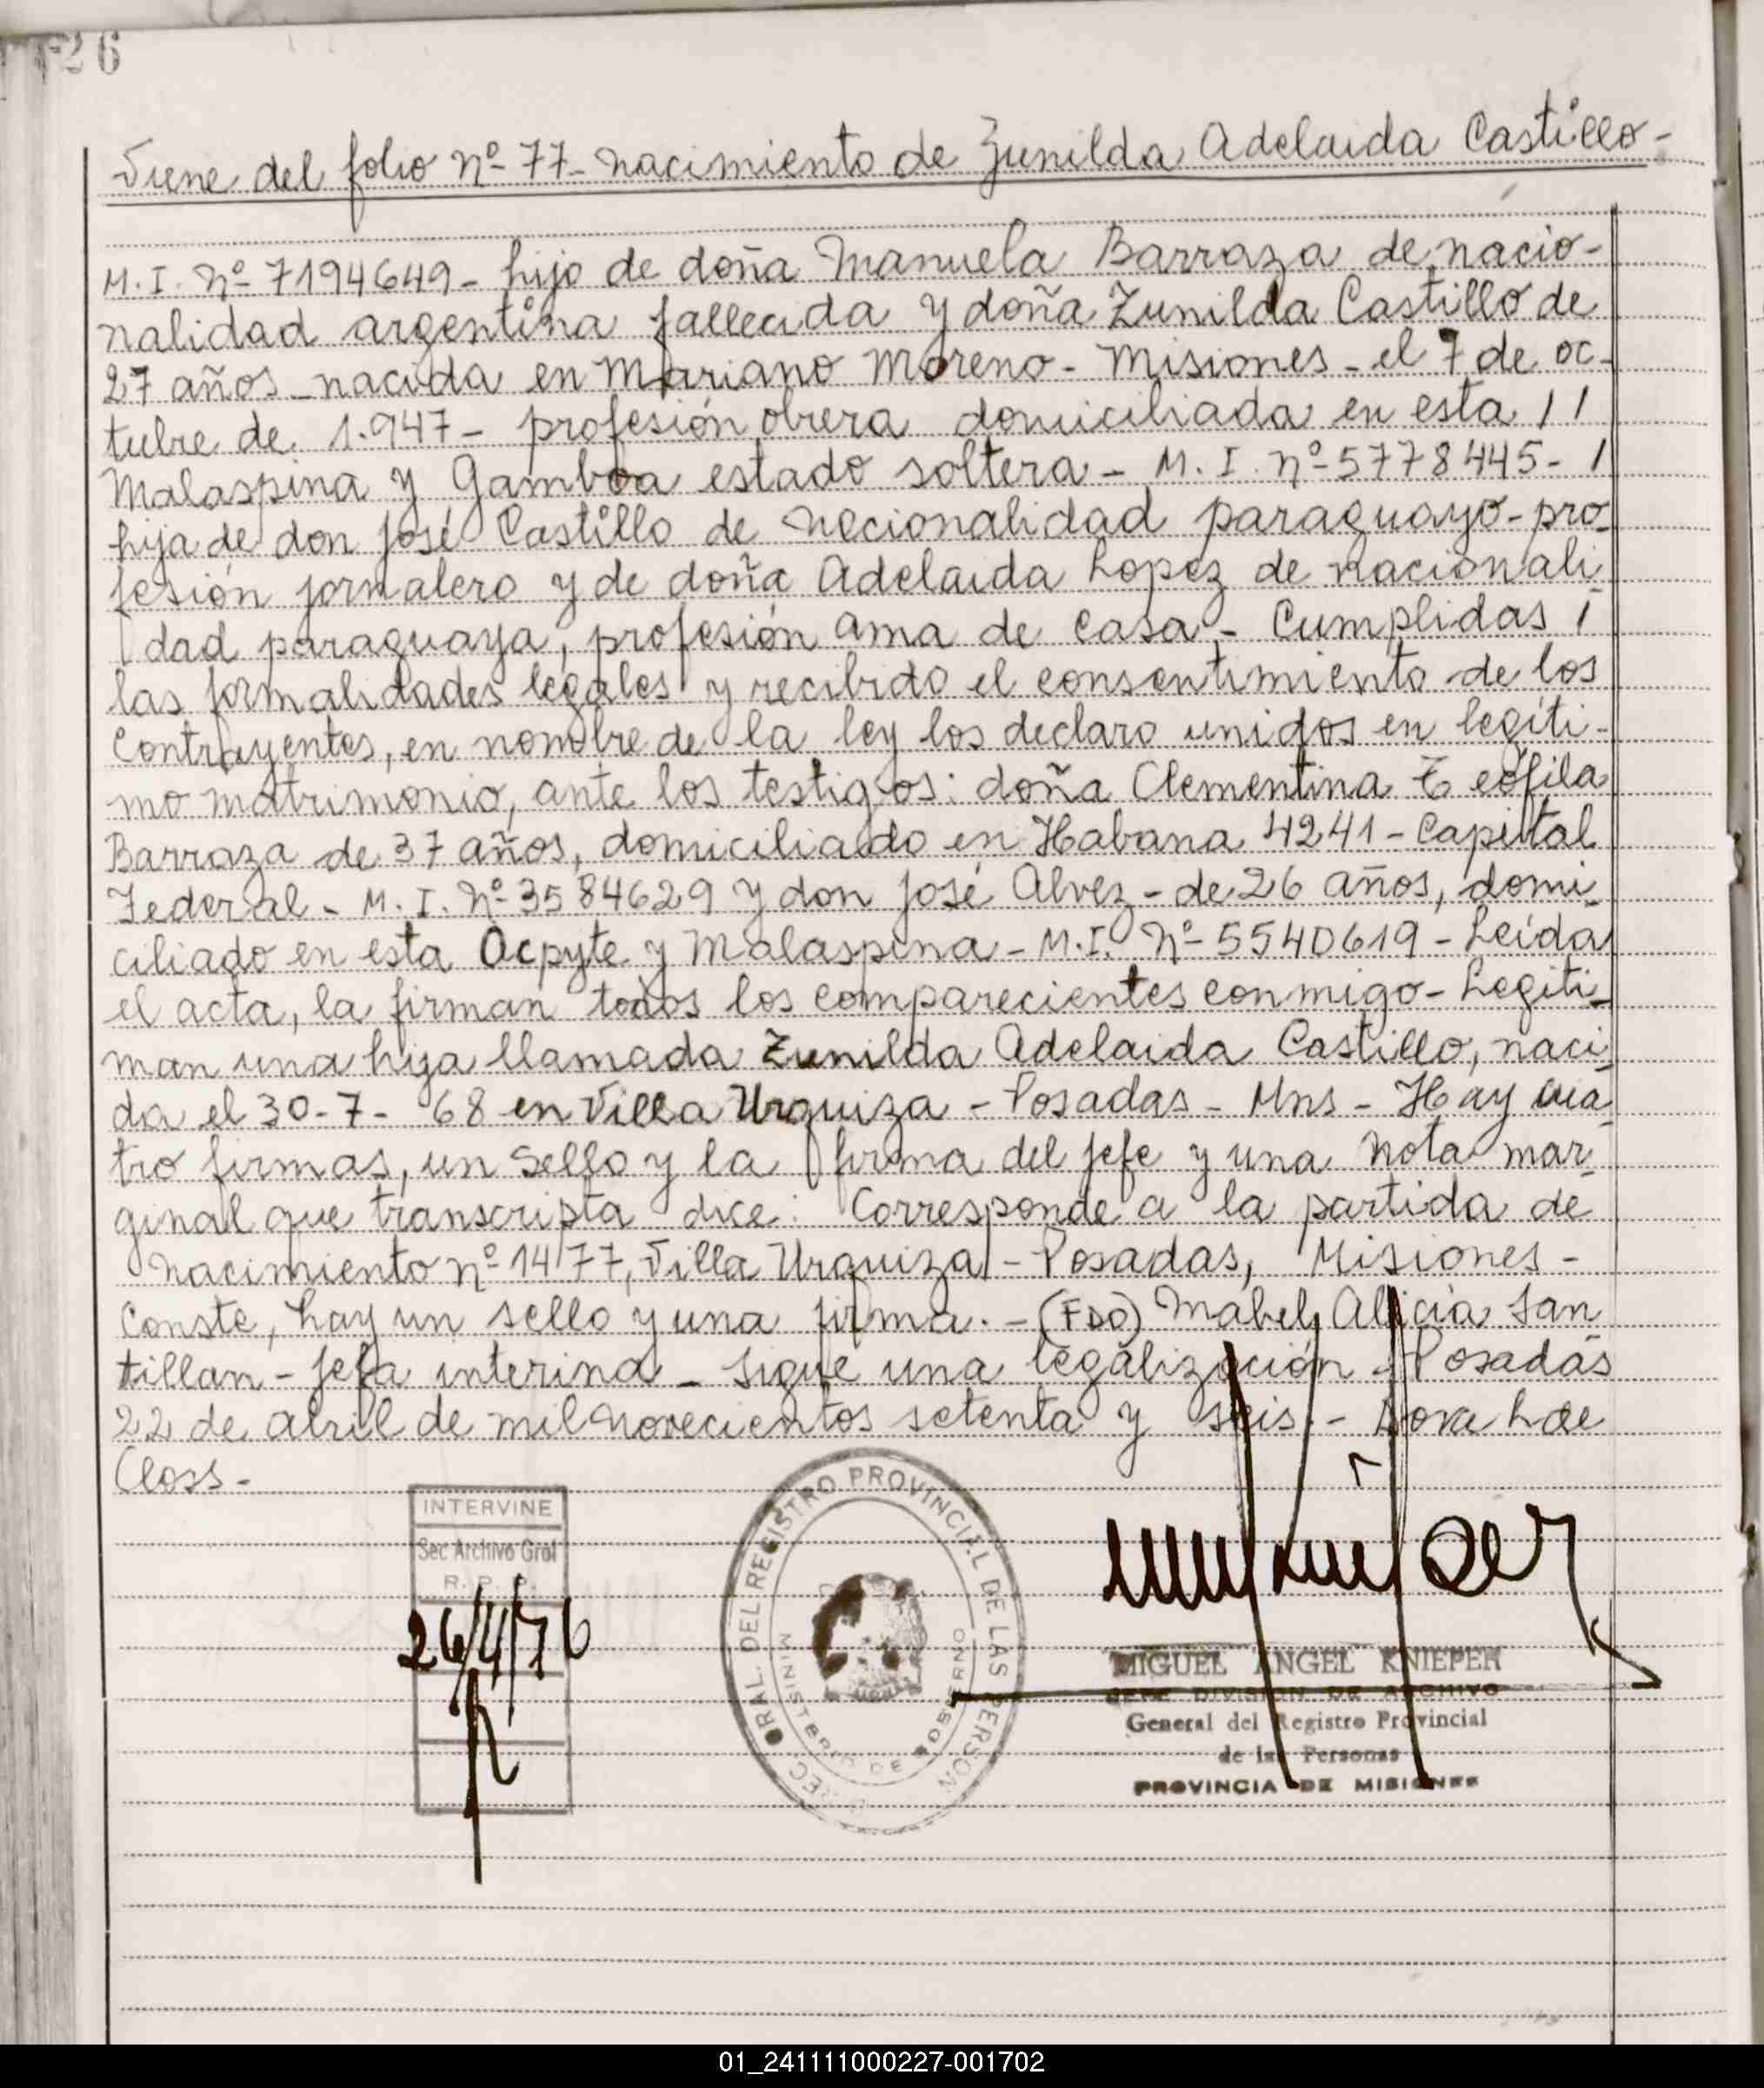 26
Viene del folio nº 77 - nacimiento de Zunilda Adelaida Castillo -
M. I. Nº 7194649 - hijo de doña Manuela Barraza de nacio-
nalidad argentina fallecida y doña Zunilda Castillo de
27 años - nacida en Mariano Moreno - Misiones - el 7 de oc-
tubre de 1.947 - profesión obrera domiciliada en esta //
Malaspina y Gamboa estado soltera - M. I. nº 5778445 - /
hija de don José Castillo de nacionalidad paraguayo - pro-
fesión jornalero y de doña Adelaida Lopez de nacionali
dad paraguaya, profesión ama de casa - Cumplidas /
las formalidades legales y recibido el consentimiento de los
contrayentes, en nombre de la ley los declaro unidos en legíti-
mo matrimonio, ante los testigos: doña Clementina Teófila
Barraza de 37 años, domiciliado en Habana 4241 - Capital
Federal - M. I. Nº 3584629 y don José Alvez - de 26 años, domi-
ciliado en esta Ocpyte y Malaspina - M. I. Nº 5540619 - Leída
el acta, la firman todos los comparecientes conmigo - Legiti-
man una hija llamada Zunilda Adelaida Castillo, naci-
da el 30-7-68 en Villa Urquiza - Posadas - Mns - Hay cua-
tro firmas, un sello y la firma del jefe y una nota mar-
ginal que transcripta dice: Corresponde a la partida de
nacimiento nº 1477, Villa Urquiza - Posadas, Misiones -
Conste, hay un sello y una firma. - (FDO) Mabel Alicia San
tillan - Jefa interina - Sigue una legalización - Posadas
22 de abril de mil novecientos setenta y seis. - Dora h de
Closs -
INTERVINE
Sec Archivo Gral
R. P. P.
26/4/76
REGISTRO PROVINCIAL DE LAS PERSON
MINISTERIO DE GOBIERNO
MIGUEL ANGEL KNIEPER
JEFE DIVISION DE ARCHIVO
General del Registro Provincial
de las Personas
PROVINCIA DE MISIONES
01_241111000227-001702